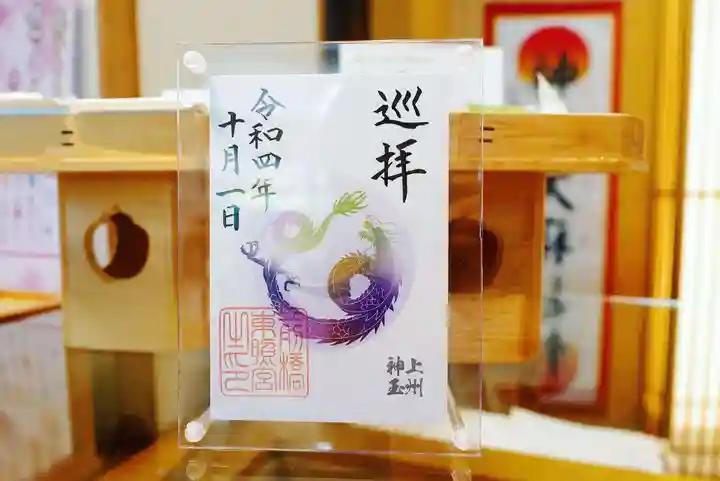 巡拝
令和四年
十月一日
上州
神玉
前橋
東照宮
之印